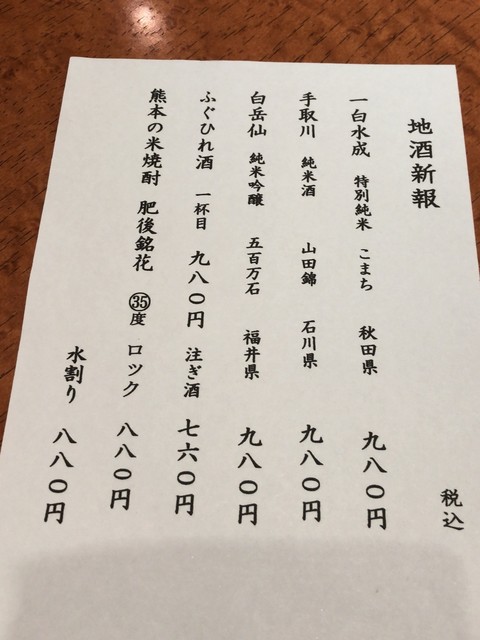 地酒新報
税込
一白水成 特別純米 こまち 秋田県 九八〇円
手取川 純米酒 山田錦 石川県 九八〇円
白岳仙 純米吟醸 五百万石 福井県 九八〇円
ふぐひれ酒 一杯目 九八〇円 注ぎ酒 七六〇円
熊本の米焼酎 肥後銘花 ㉟度 ロック 八八〇円
水割り 八八〇円